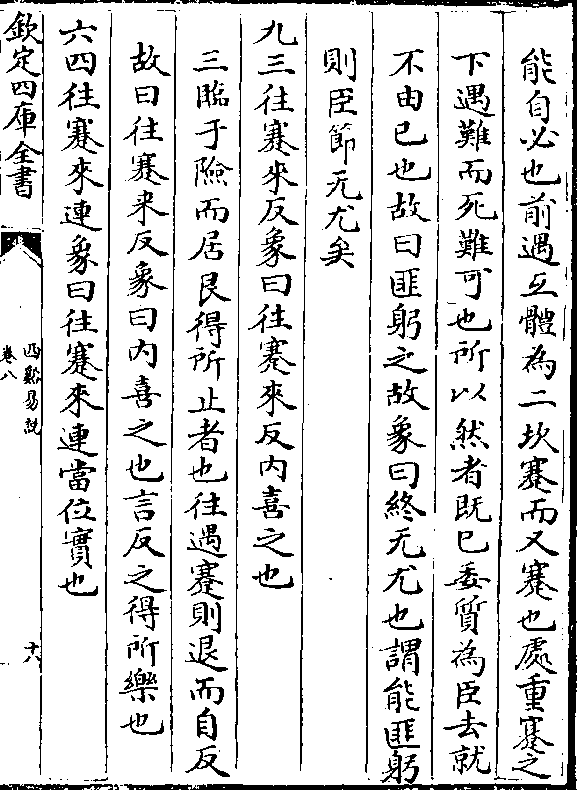 能自必也前遇互體為二坎蹇而又蹇也處重蹇之
下遇難而死難可也所以然者既已委質為臣去就
不由已也故曰匪躬之故象曰終无尤也謂能匪躬
則臣節无尤矣
九三往蹇來反象曰往蹇來反内喜之也
三臨于險而居艮得所止者也往遇蹇則退而自反
故曰往蹇来反象曰内喜之也言反之得所樂也
六四往蹇來連象曰往蹇來連當位實也
欽定四庫全書
西谿易說
卷八
十八